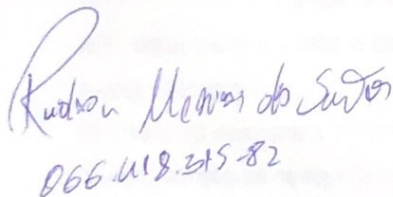 Rudson Messias dos Santos
066.418.315-82